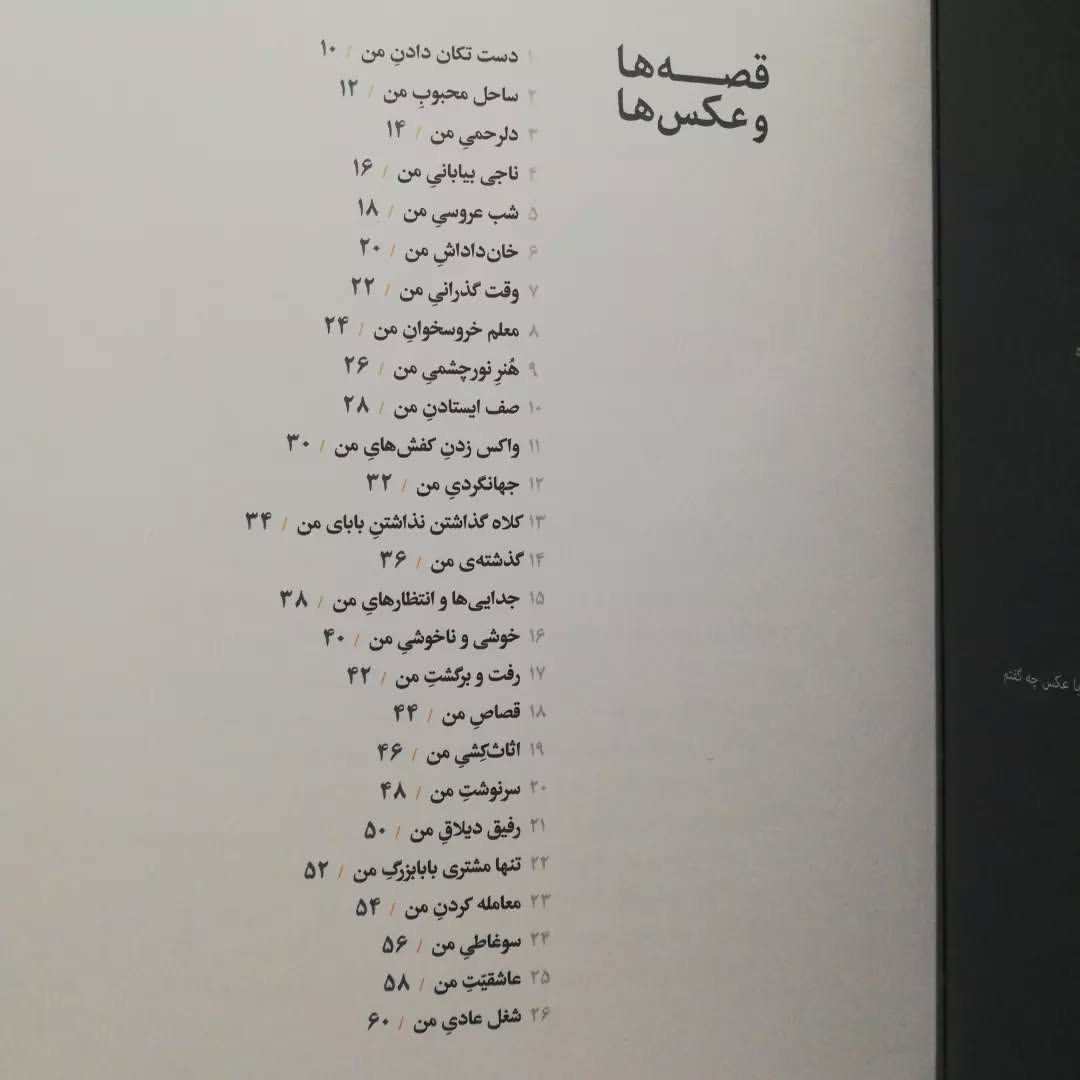 قصه‌ها
و عکس‌ها
۱ دست تکان دادنِ من / ۱۰
۲ ساحل محبوبِ من / ۱۲
۳ دلرحمیِ من / ۱۴
۴ ناجی بیابانیِ من / ۱۶
۵ شب عروسیِ من / ۱۸
۶ خان‌داداشِ من / ۲۰
۷ وقت گذرانیِ من / ۲۲
۸ معلم خروسخوانِ من / ۲۴
۹ هُنرِ نورچشمیِ من / ۲۶
۱۰ صف ایستادنِ من / ۲۸
۱۱ واکس زدنِ کفش‌هایِ من / ۳۰
۱۲ جهانگردیِ من / ۳۲
۱۳ کلاه گذاشتن نذاشتنِ بابای من / ۳۴
۱۴ گذشته‌ی من / ۳۶
۱۵ جدایی‌ها و انتظارهایِ من / ۳۸
۱۶ خوشی و ناخوشیِ من / ۴۰
۱۷ رفت و برگشتِ من / ۴۲
۱۸ قصاصِ من / ۴۴
۱۹ اثاث‌کِشیِ من / ۴۶
۲۰ سرنوشتِ من / ۴۸
۲۱ رفیق دیلاقِ من / ۵۰
۲۲ تنها مشتری بابابزرگِ من / ۵۲
۲۳ معامله کردنِ من / ۵۴
۲۴ سوغاطیِ من / ۵۶
۲۵ عاشقیّتِ من / ۵۸
۲۶ شغل عادیِ من / ۶۰
با عکس چه گفتم